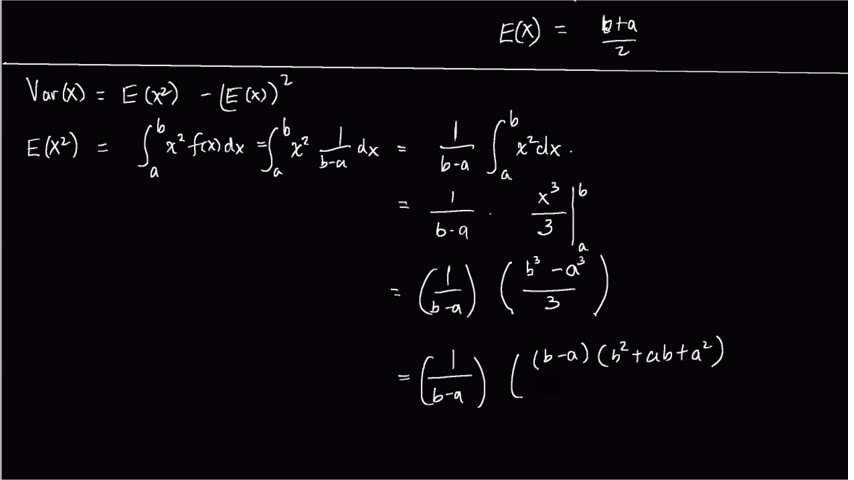 E(X) = (b+a)/2
Var(X) = E(X²) - (E(X))²
E(X²) = ∫ₐᵇ x² f(x) dx = ∫ₐᵇ x² 1/(b-a) dx = 1/(b-a) ∫ₐᵇ x² dx.
= 1/(b-a) · x³/3 |ₐᵇ
= (1/(b-a)) ((b³ - a³)/3)
= (1/(b-a)) ( (b-a)(b² + ab + a²)